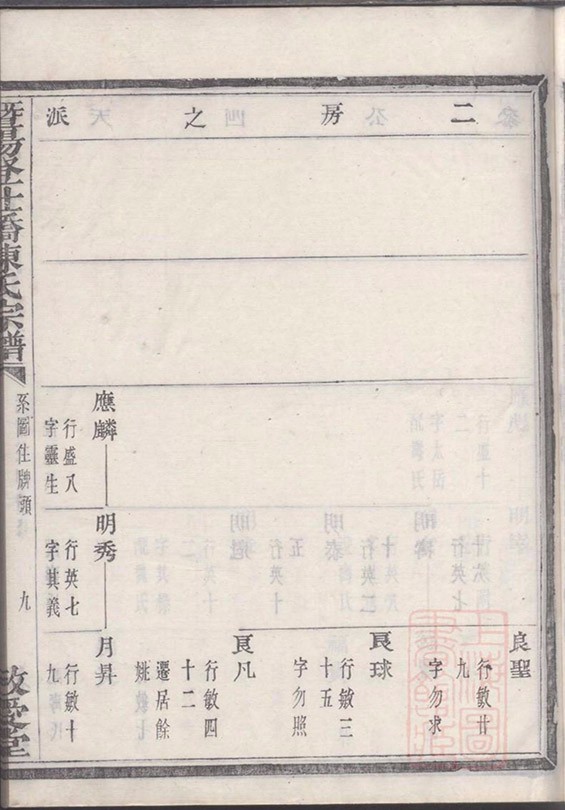 二房之派
良聖
行敏廿
九
字勿求
良球
行敏三
十五
字勿照
良凡
行敏四
十二
遷居餘
姚
應麟
行盛八
字靈生
明秀
行英七
字其義
月昇
行敏十
九
暨陽
橋陳氏宗譜
系圖住牌頭
九
敬愛堂